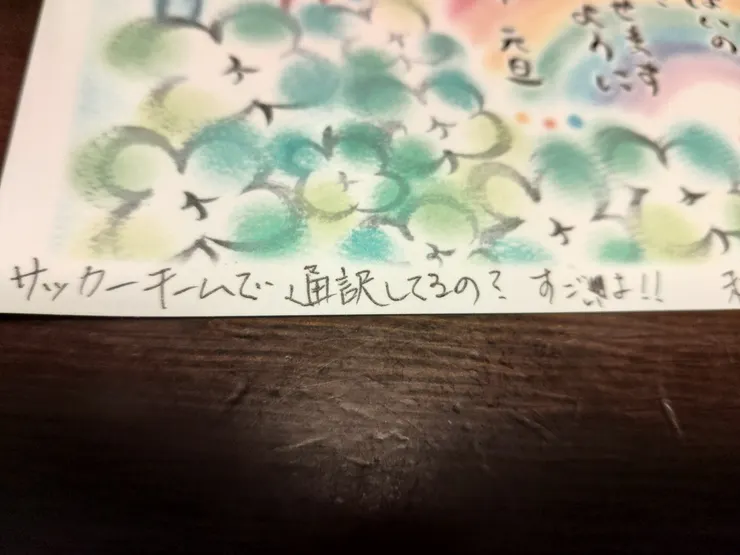 ぱいの
せます
ように
元旦
サッカーチームで通訳してるの? すごいよ!!